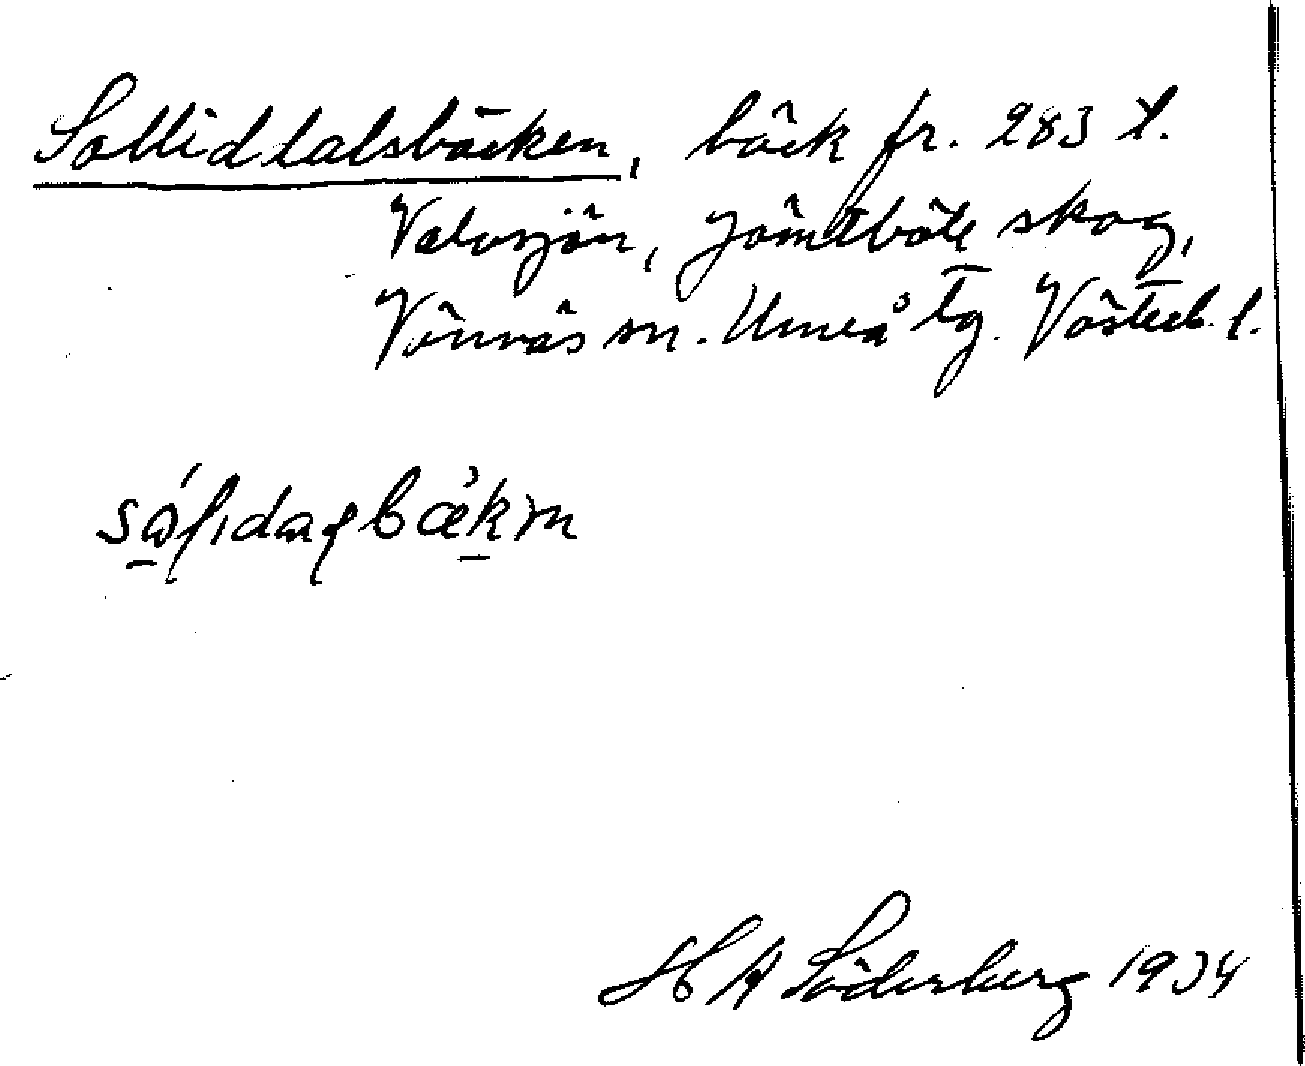 Sollidtalsbäcken, bäck fr. 283 t.
Valusjön, Jämtböle skog,
Vännäs sn. Umeå tg. Västerb. l.
H A Söderberg 1934